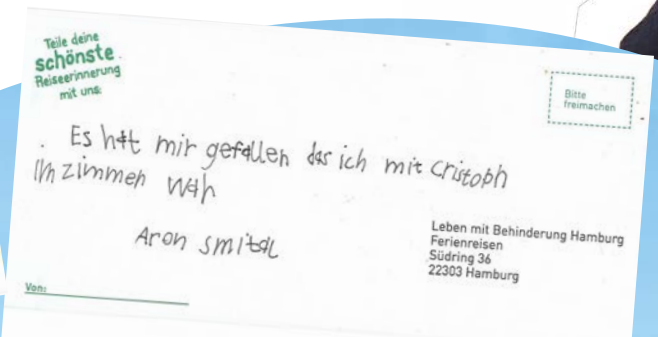 Teile deine
schönste
Reiseerinnerung
mit uns:
Bitte
freimachen
Es hat mir gefallen das ich mit Cristoph
im zimmen wah
Aron smital
Leben mit Behinderung Hamburg
Ferienreisen
Südring 36
22303 Hamburg
Von: